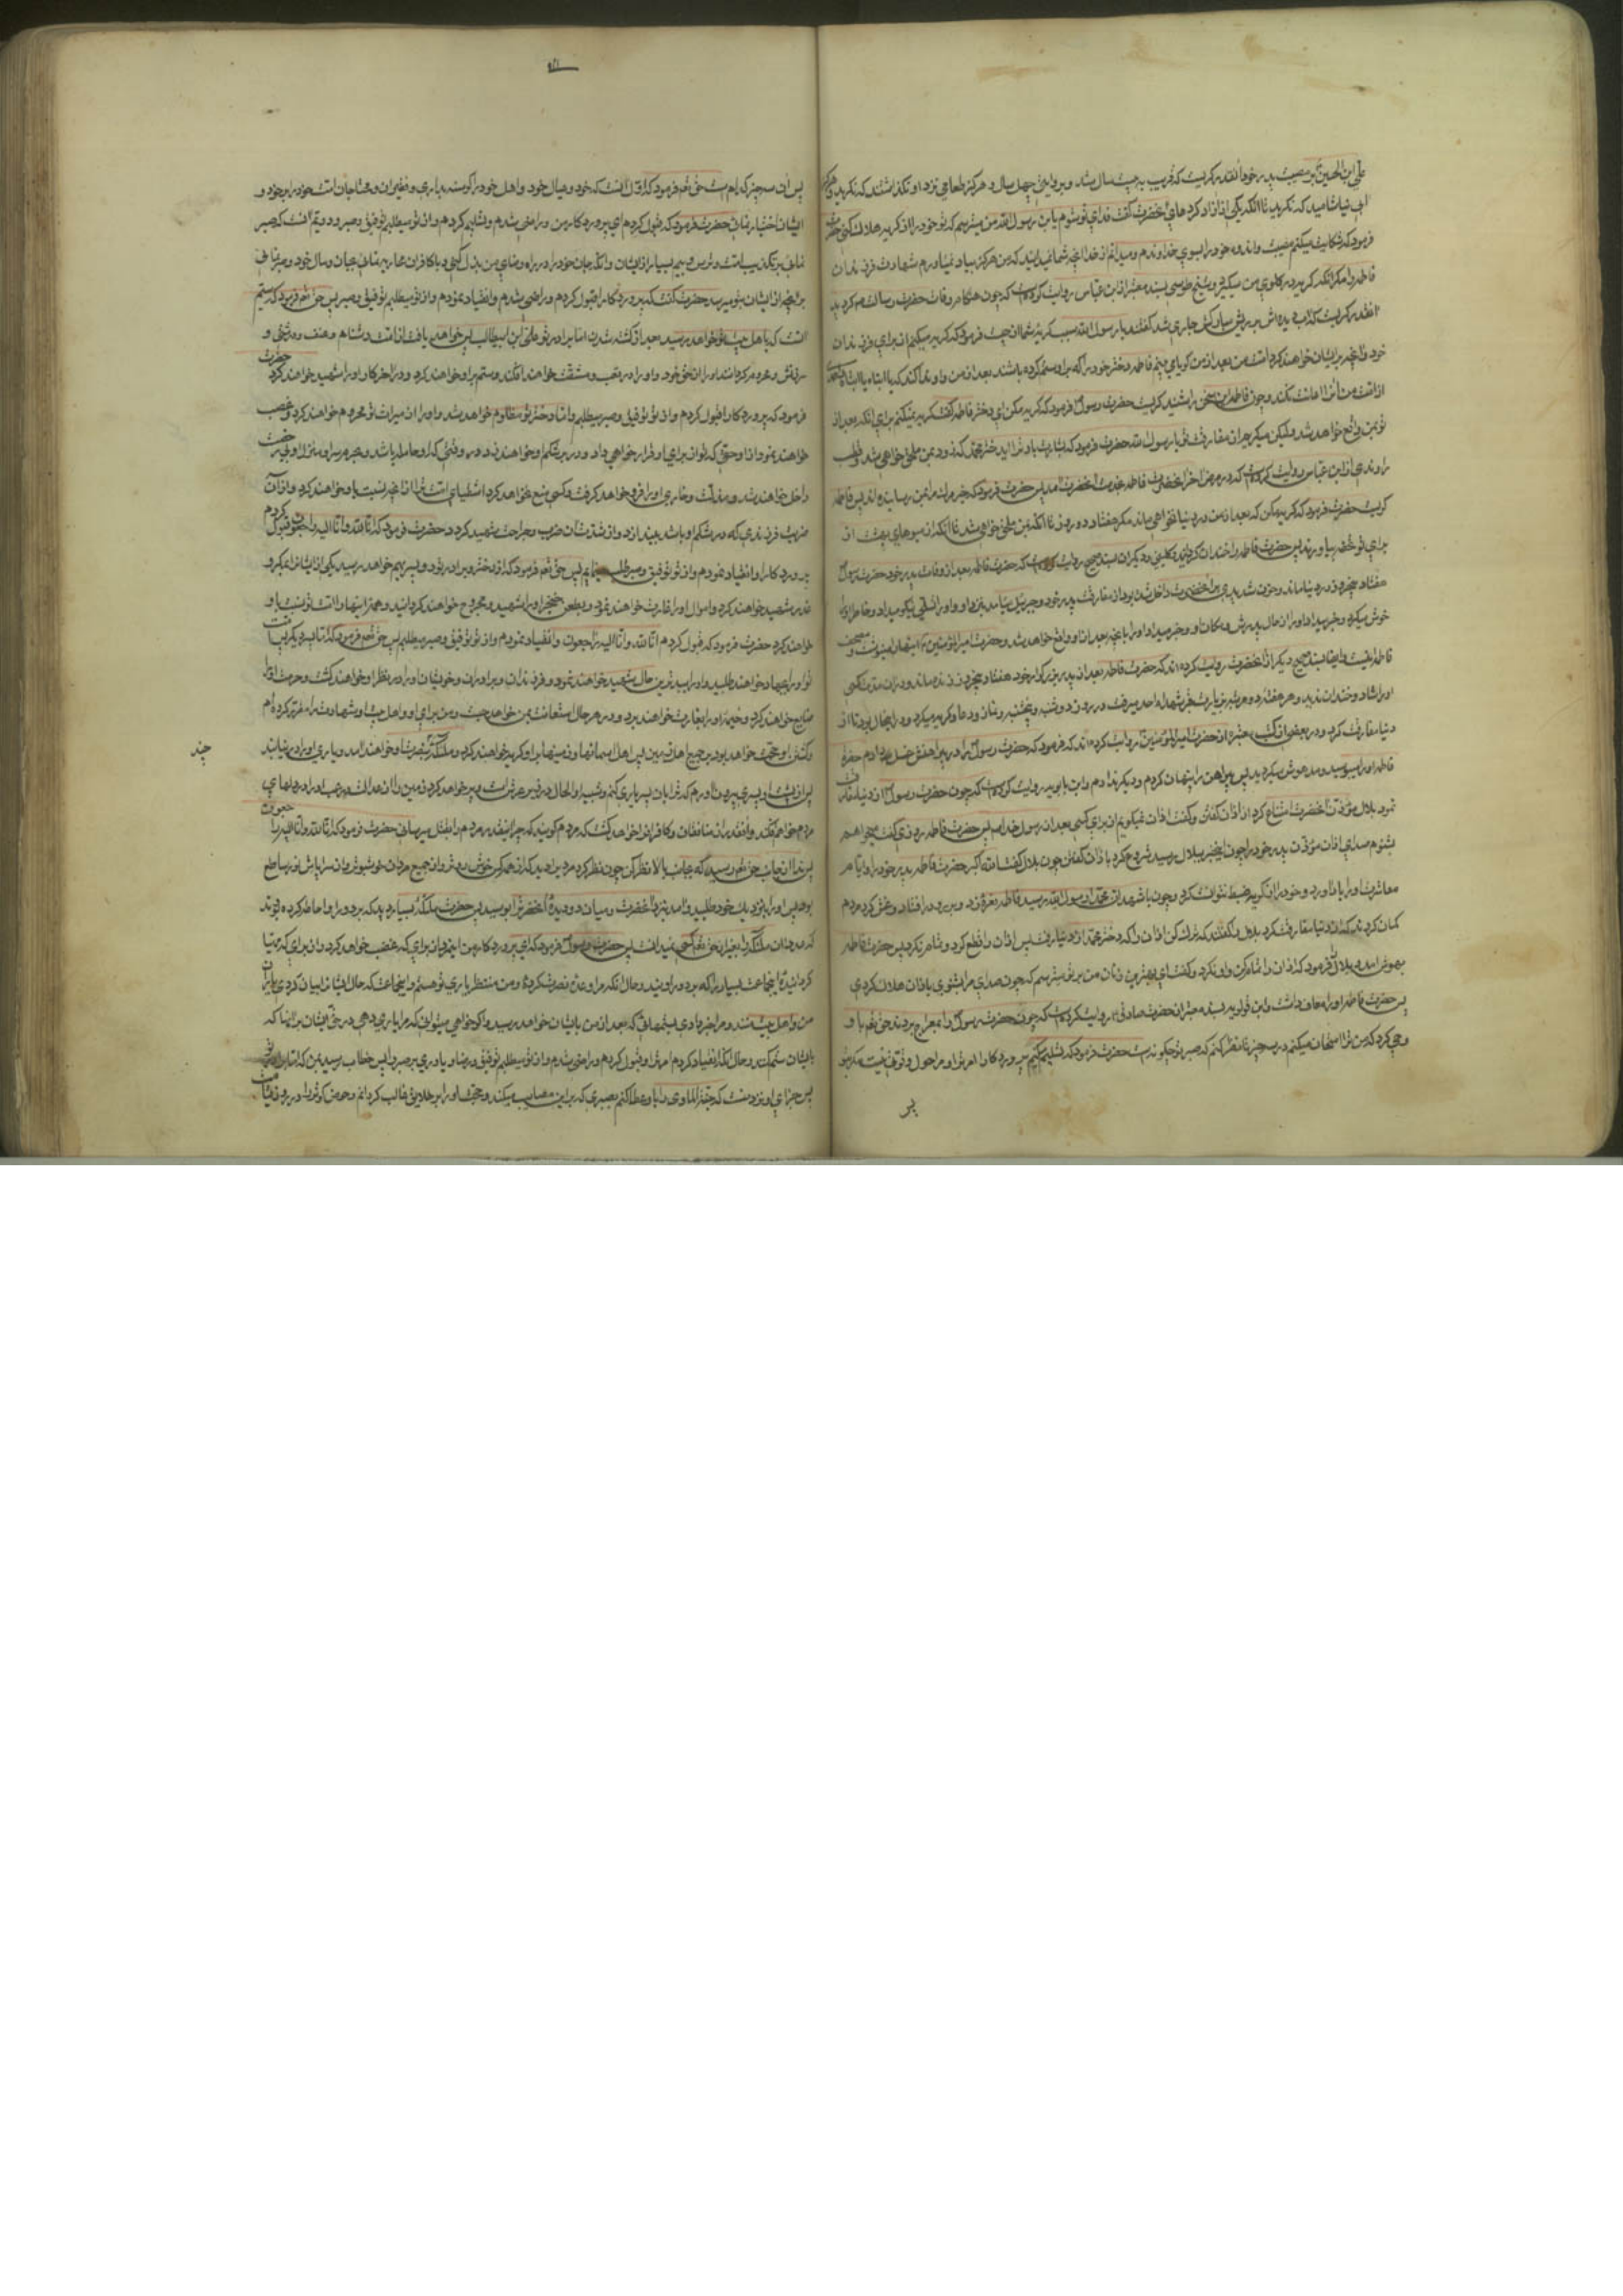 علی ابن الحسین بر مصیبت پدر خود آنقدر گریست که قریب به بیست سال شد و بروایتی چهل سال و هرگز طعامی نزد او نگذاشتند که نگرید و هرگز
آبی نیاشامید که نگرید تا آنکه یکی از آزاد کردهای آنحضرت گفت فدای تو شوم یا بن رسول الله من میترسم که تو خود را از گریه هلاک کنی حضرت
فرمود که شکایت میکنم مصیبت و اندوه خود را بسوی خداوندم و میدانم از خدا آنچه شما نمیدانید که من هرگز بیاد نمیاورم شهادت فرزندان
فاطمه را مگر آنکه گریه در گلوی من میگیرد و شیخ طوسی بسند معتبر از ابن عباس روایت کرده است که چون هنگام وفات حضرت رسالت شد گریه
آنقدر گریست که آب دیده‌اش بر ریش مبارکش جاری شد گفتند یا رسول الله سبب گریه شما از چیست فرمود که گریه میکنم از برای فرزندان
خود و آنچه بر ایشان خواهند کرد امت من بعد از من گویا می بینم فاطمه دختر خود را که بر او ستم کرده باشند بعد از من و او ندا کند که یا ابتاه یا ابتاه
از امت من او را اعانت نکند و چون فاطمه این سخن را شنید گریست حضرت رسول فرمود که گریه مکن ای دختر فاطمه گفت گریه نمیکنم برای آنکه بعد از
تو بمن واقع خواهد شد ولیکن میگریم از مفارقت تو یا رسول الله حضرت فرمود که بشارت باد ترا ای دختر محمد که زود بمن ملحق خواهی شد و قطب
راوندی از ابن عباس روایت کرده است که در مرض آخر آنحضرت فاطمه بخدمت آنحضرت آمد پس حضرت فرمود که خبر مرگ مرا بمن رسانیده اند پس فاطمه
گریست حضرت فرمود که گریه مکن که بعد از من در دنیا نخواهی ماند مگر هفتاد و دو روز و نیم تا آنکه بمن ملحق خواهی شد تا آنکه از میوهای بهشت از
برای تو تحفه بیاورند پس حضرت فاطمه را خندان گردانید و کلینی و دیگران بسند صحیح روایت کرده است که حضرت فاطمه بعد از وفات پدر خود حضرت رسول
هفتاد و پنج روز در دنیا ماند و حزن شدیدی بر آنحضرت داخل شده بود از مفارقت پدر خود و جبرئیل میامد بنزد او و او را تسلی نیکو میداد و خاطر او را
خوش میکرد و خبر میداد او را از حال پدرش و مکان او و خبر میداد او را بآنچه بعد از او واقع خواهد شد و حضرت امیر المؤمنین اینها را مینوشت و مصحف
فاطمه اینست و ایضا بسند صحیح دیگر از آنحضرت روایت کرده اند که حضرت فاطمه بعد از پدر بزرگوار خود هفتاد و پنج روز زنده ماند و در آن مدت کسی
او را شاد و خندان ندید و هر هفته دو مرتبه بزیارت قبر شهداء احد میرفت در روز دوشنبه و پنجشنبه و نماز و دعا و گریه میکرد و در اینحال بود تا از
دنیا مفارقت کرد و در بعضی از کتب معتبره از حضرت امیر المؤمنین روایت کرده اند که فرمود که حضرت رسول را در پیراهنش غسل دادم حضرت
فاطمه او را میبوسید و مدهوش میگردید پس پیراهن را پنهان کردم و دیگر ندادم و ابن بابویه روایت کرده است که چون حضرت رسول از دنیا رفت
نمود بلال مؤذن آنحضرت امتناع کرد از اذان گفتن و گفت اذان نمیگویم از برای کسی بعد از رسول خدا پس حضرت فاطمه روزی گفت میخواهم
بشنوم صدای اذان مؤذن پدر خود را چون اینخبر ببلال رسید شروع کرد باذان گفتن چون بلال گفت الله اکبر حضرت فاطمه پدر خود را و ایام
معاشرت او را بیاد آورد و خود را از گریه ضبط نتوانست کرد و چون باشهد ان محمدا رسول الله رسید فاطمه نعره زد و بر رو در افتاد و غش کرد مردم
گمان کردند که از دنیا مفارقت کرد ببلال گفتند که ترک کن اذان را که دختر محمد از دنیا رفت پس اذان را قطع کرد و تمام نکرد پس حضرت فاطمه
بهوش آمد و بلال را فرمود که اذان را تمام کن و او نکرد و گفت ای بهترین زنان من بر تو میترسم که چون صدای مرا بشنوی باذان هلاک گردی
پس حضرت فاطمه او را معاف داشت و ابن قولویه بسند معتبر از حضرت صادق روایت کرده است که چون حضرت رسول را بمعراج بردند حق تعالی باو
وحی کرد که من ترا امتحان میکنم در سه چیز تا نظر کنم که صبر تو چگونه است حضرت فرمود که تسلیم میکنم پروردگارا امر ترا و مرا حول و قوتی نیست مگر بتو
پس
پس آن سه چیز کدام است حق تعالی فرمود که اول آنست که خود و عیال خود و اهل خود را گرسنه بداری و فقیران و محتاجان امت خود را بر خود و
ایشان اختیار نمائی حضرت فرمود که قبول کردم ای پروردگار من و راضی شدم و تسلیم کردم و از تو میطلبم توفیق و صبر و دویم آنست که صبر
نمائی بر تکذیب امت و ترس و بیم بسیار از ایشان و آنکه جان خود را در راه رضای من بذل کنی و با کافران محاربه نمائی بجان و مال خود و صبر نمائی
بر آنچه از ایشان بتو میرسد حضرت گفت که پروردگارا قبول کردم و راضی شدم و انقیاد نمودم و از تو میطلبم توفیق و صبر پس حق تعالی فرمود که سیم
آنست که باهل بیت تو خواهد رسید بعد از کشته شدن اما برادر تو علی ابن ابیطالب پس خواهد یافت از امت دشنام و عنف و درشتی و
سرزنش و محروم گردانند او را از حق خود و او را در تعب و مشقت خواهند افکند و ستم بر او خواهند کرد و در آخر کار او را شهید خواهند کرد حضرت
فرمود که پروردگارا قبول کردم و از تو توفیق و صبر میطلبم و اما دختر تو مظلوم خواهد شد و او را از میراث تو محروم خواهند کرد و غصب
خواهند نمود از او حقی که تو از برای او قرار خواهی داد و در بر شکم او خواهند زد در وقتی که او حامله باشد و بحرم سرا و منزل او بی رخصت
داخل خواهند شد و مذلت و خواری او را فرو خواهد گرفت و کسی منع نخواهد کرد اشقیای امت ترا از آنچه نسبت باو خواهند کرد و از آن
ضربت فرزندی که در شکم او باشد بیندازد و از شدت آن ضرب و جراحت شهید گردد حضرت فرمود که انا لله و انا الیه راجعون قبول کردم
پروردگارا و انقیاد نمودم و از تو توفیق و صبر طلب مینمایم پس حق تعالی فرمود که از دختر و برادر تو دو پسر بهم خواهد رسید یکی از ایشان را بمکر و
غدر شهید خواهند کرد و اموال او را غارت خواهند نمود و بطعن خنجر او را شهید و مجروح خواهند گردانید و همه اینها را امت تو نسبت باو
خواهند کرد حضرت فرمود که قبول کردم انا لله و انا الیه راجعون و انقیاد نمودم و از تو توفیق و صبر میطلبم پس حق تعالی فرمود که اما پسر دیگر پس امت
تو او را بجهاد خواهند طلبید و او را ببدترین حال شهید خواهند نمود و فرزندان و برادران و خویشان او را در نظر او خواهند کشت و حرمت او را
ضایع خواهند کرد و خیمه او را بغارت خواهند برد و در هر حال استعانت بمن خواهد جست و من برای او و اهل بیت او شهادت را مقرر کرده ام
و کشتن او حجت خواهد بود بر جمیع اهل زمین پس اهل آسمانها و زمینها بر او گریه خواهند کرد و ملئکه که بنصرت او خواهند آمد و یاری او را در نیابند
چند
پس از پشت او پسری بیرون آورم که ترا بآن پسر یاری کنم و شبیه او الحال در زیر عرش است و پر خواهد کرد زمین را از عدالت و رعب او را در دلهای
مردم خواهم افکند و آنقدر از منافقان و کافران را خواهد کشت که مردم گویند که چرا اینقدر مردم را بقتل میرسانی حضرت فرمود که انا لله و انا الیه راجعون
پس ندا از جانب حق تعالی رسید که بجانب بالا نظر کن چون نظر کرد مردیرا دید که از همه کس خوش روتر و از جمیع مردان خوشبوتر و از سراپایش نور ساطع
بود پس او را بنزدیک خود طلبید و آمد بنزد آنحضرت و میان دو دیده آنحضرت را بوسید پس حضرت ملئکه بسیار دید که بر دور او احاطه کرده بودند
که عدد آن ملئکه را بغیر از حق تعالی کسی نمیدانست پس حضرت رسول فرمود که ای پروردگار من این مرد از برای که غضب خواهد کرد و از برای که مهیا
گردانیده اینجماعت بسیار را که بر دور اویند و حال آنکه مرا وعده نصرت کرده و من منتظر یاری تو هستم و اینجماعت که حال ایشانرا بیان کردی یاران
من و اهل بیت منند و مرا خبر دادی بستمهائی که بعد از من بایشان خواهد رسید و اگر خواهی میتوانی که مرا یاری دهی در حق ایشان بر آنها که
بایشان ستم کنند و حال آنکه انقیاد کردم امر ترا و قبول کردم و راضی شدم و از تو میطلبم توفیق و رضا و یاوری بر صبر پس خطاب رسید بمن که اما برادر تو
پس جزای او نزد منست که جنة الماوی را باو عطا کنم بصبری که بر این مصایب میکند و حجت او را بر خلایق غالب گردانم و حوض کوثر را در روز قیامت